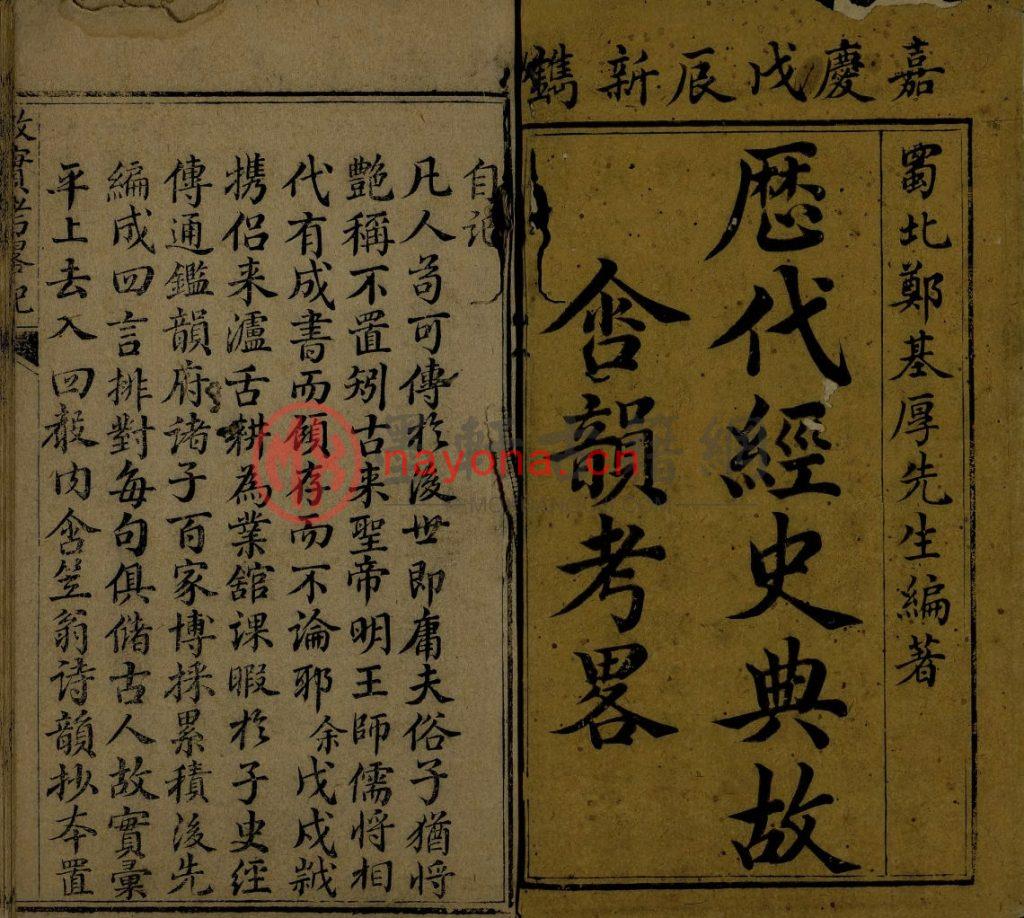 嘉慶戊辰新鐫
蜀北鄭基厚先生編著
歴代經史典故
含韻考畧
自记
凡人苟可傳於後世即庸夫俗子猶將
艷稱不置矧古来聖帝明王師儒將相
代有成書而傾存而不論耶余戊戍
携侣来瀘舌耕為業舘課暇於子史經
傳通鑑韻府诸子百家博採累積後先
編成四言排對每句俱俻古人故實彙
平上去入四散内含笠翁诗韻抄夲置
故實考畧記
nayona.cn